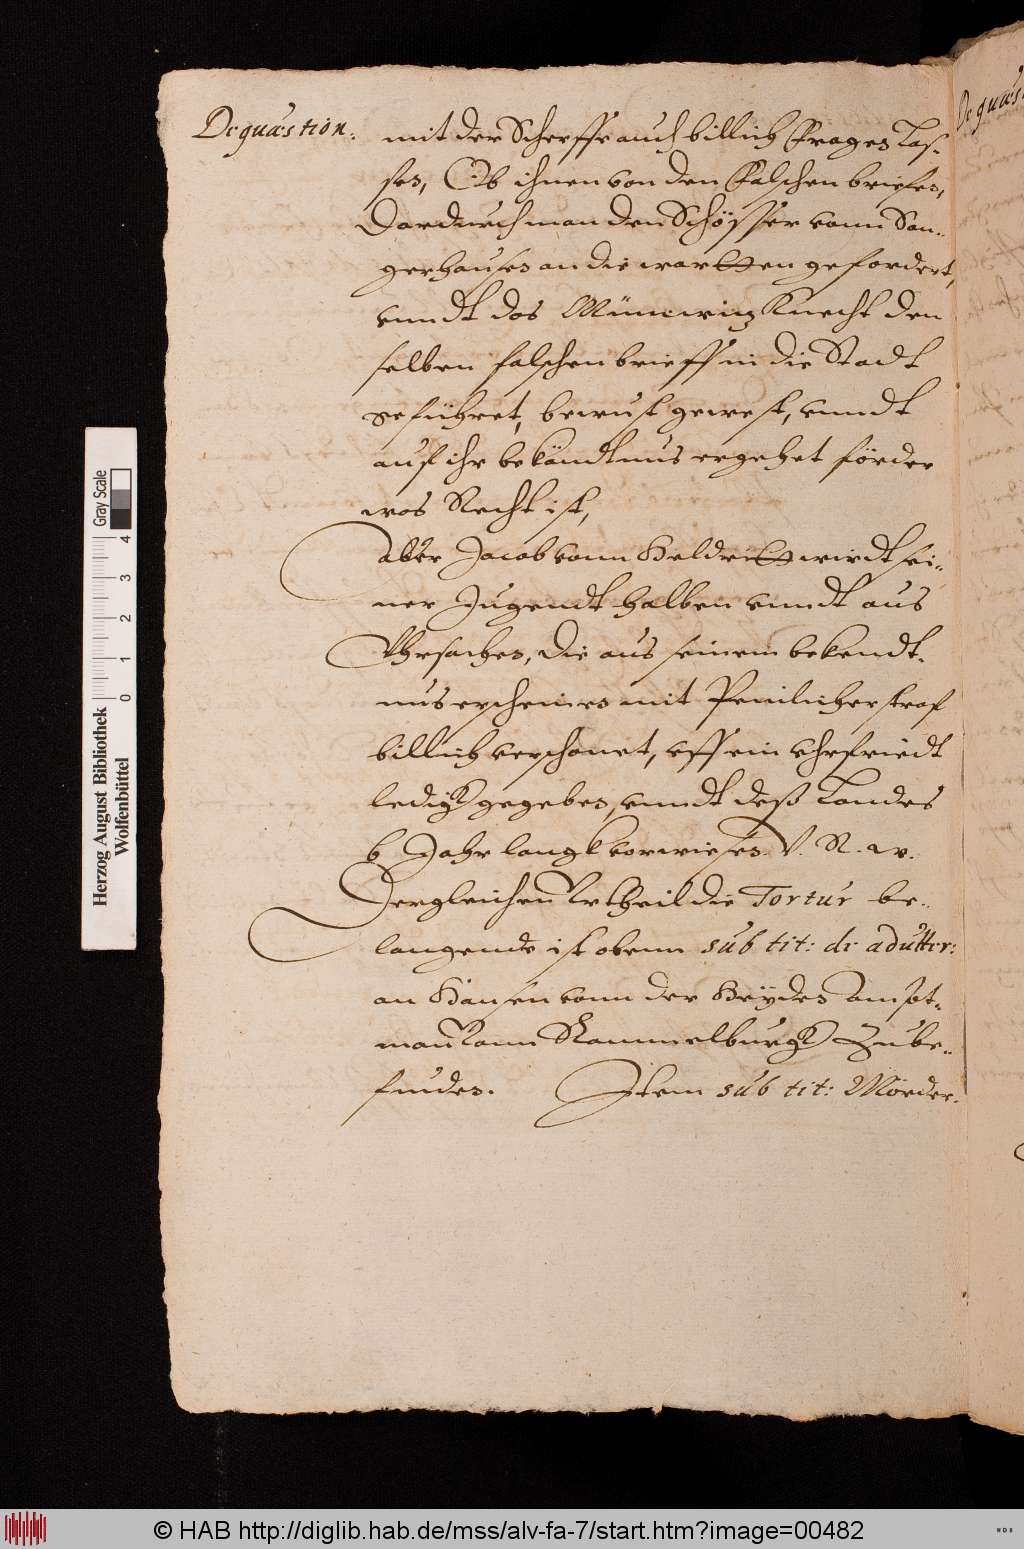 De quæstion:
mit der Scherffe auch billich fragen las-
sen, Ob ihnen von den falschen briefen,
Dardurch man den Schösser vonn San-
gerhausen an die wartten gefordert,
vnndt das Knecht den
selben falschen brieff in die Stadt
geführet, bewust gewest, vnndt
auf ihr bekändtnus ergehet förder
was Recht ist,
Aber Jacob vonn Heldritt wirdt sei-
ner Jugendt halben vnndt aus
Vhrsachen, die aus seinem bekendt-
nus erscheinen mit Peinlicher straf
billich verschonet, vff ein vhrfriedt
ledigk gegeben, vnndt deß Landes
6 Jahr langk vorwiesen V. R. w.
Dergleichen Urtheil die Tortur be-
langende ist obenn sub tit: de adulter:
an Hansen vonn der Heyden ampt-
man vonn Rammelburgk zu be-
finden. Item sub tit: Mörder.
De quæs
Herzog August Bibliothek
Wolfenbüttel
Gray Scale
0 1 2 3 4
© HAB http://diglib.hab.de/mss/alv-fa-7/start.htm?image=00482